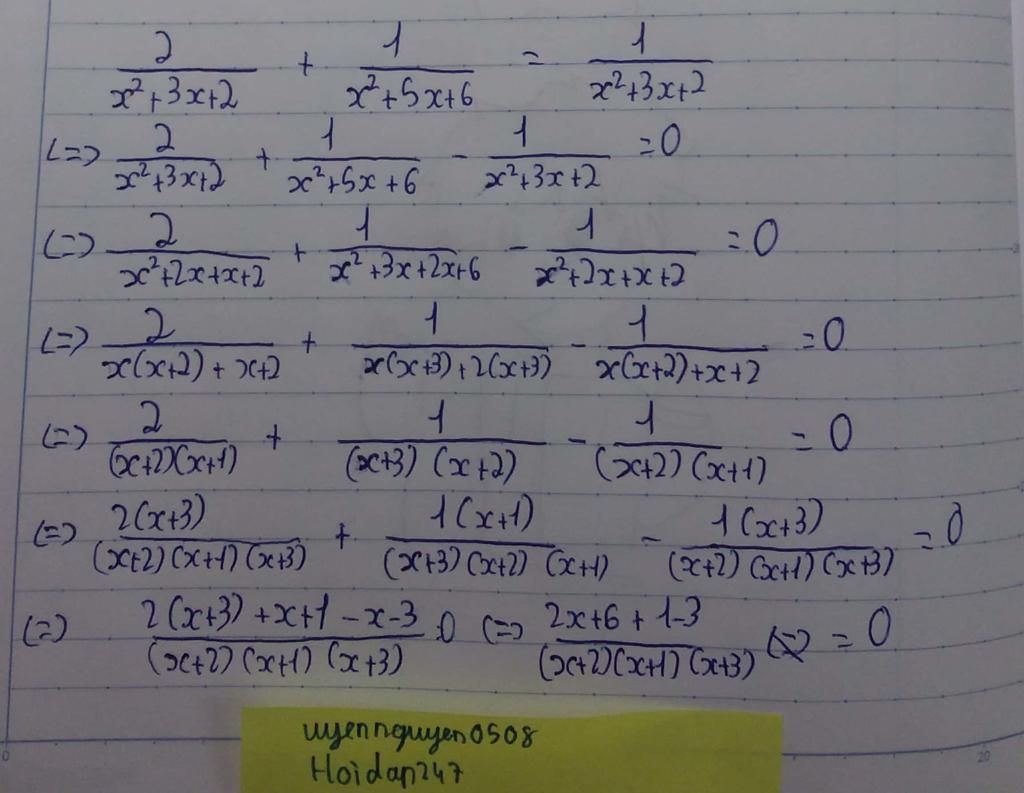 2/(x²+3x+2) + 1/(x²+5x+6) = 1/(x²+3x+2)
(=) 2/(x²+3x+2) + 1/(x²+5x+6) - 1/(x²+3x+2) = 0
(=) 2/(x²+2x+x+2) + 1/(x²+3x+2x+6) - 1/(x²+2x+x+2) = 0
(=) 2/(x(x+2)+x+2) + 1/(x(x+3)+2(x+3)) - 1/(x(x+2)+x+2) = 0
(=) 2/((x+2)(x+1)) + 1/((x+3)(x+2)) - 1/((x+2)(x+1)) = 0
(=) 2(x+3)/((x+2)(x+1)(x+3)) + 1(x+1)/((x+3)(x+2)(x+1)) - 1(x+3)/((x+2)(x+1)(x+3)) = 0
(=) (2(x+3)+x+1-x-3)/((x+2)(x+1)(x+3)) .0 (=) (2x+6+1-3)/((x+2)(x+1)(x+3)) = 0
uyennguyen0508
Hoidap247
0
20